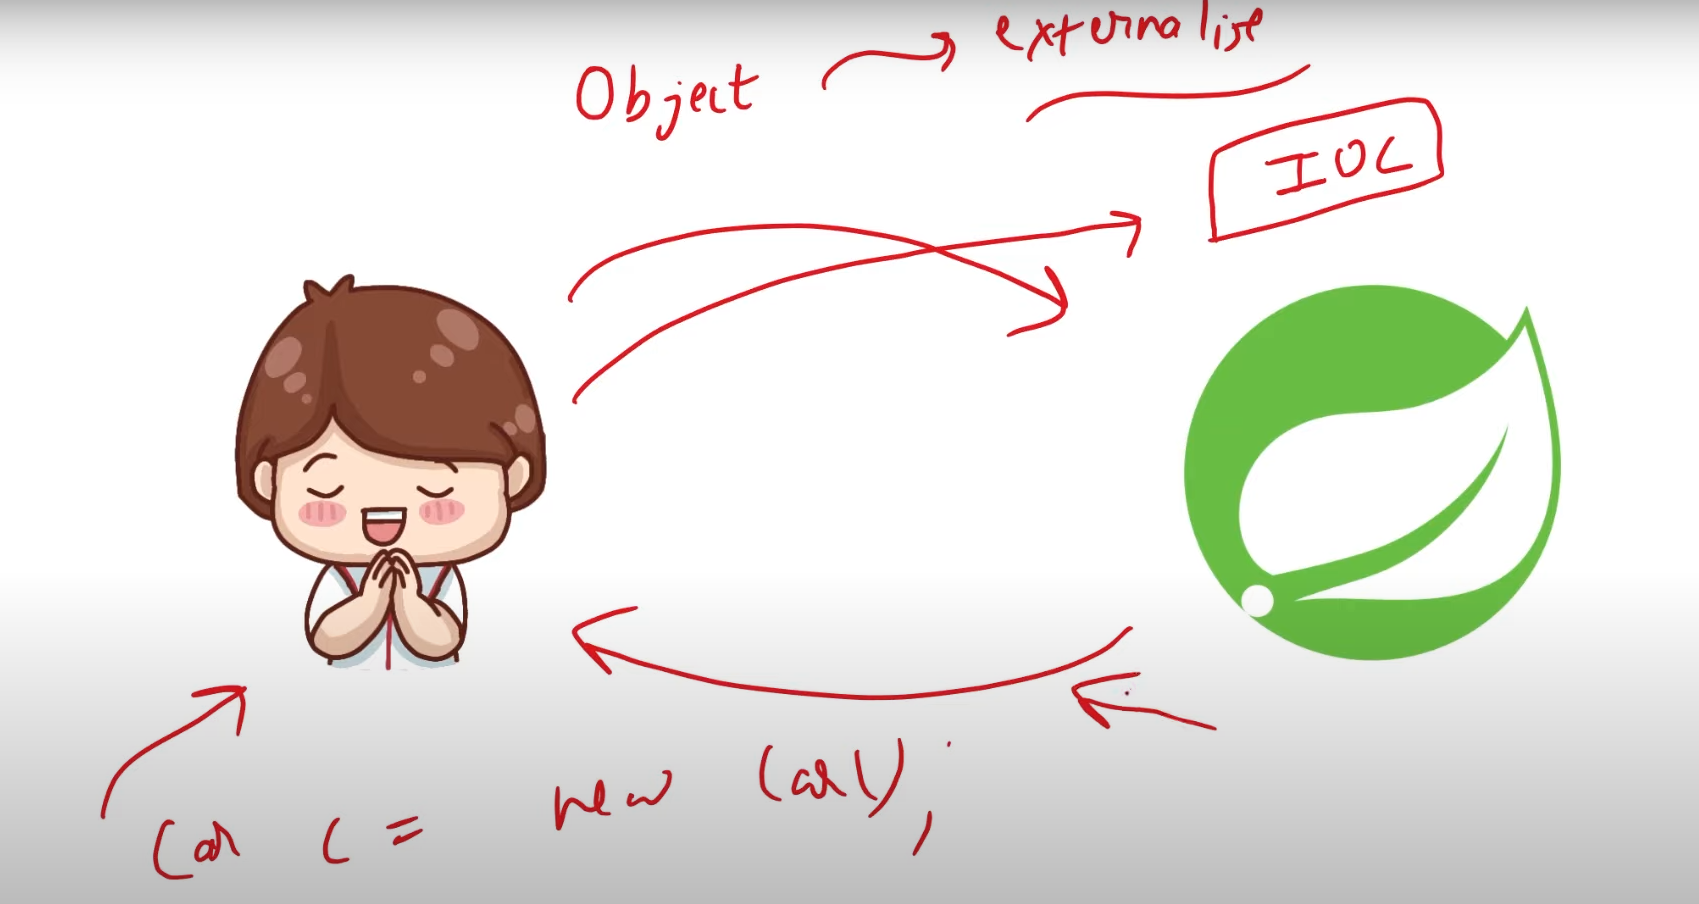 Object externalise
IOC
Car c = new Car();